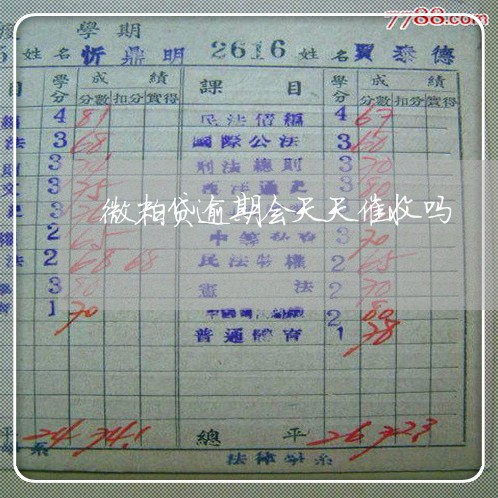 7788.com
學期
姓名 忻鼎明 2616 姓名 賈泰德
目 學分 成績 課目 學分 成績
分數 扣分 實得 分數 扣分 實得
4 81 民法債編 4 67
法 3 68 國際公法 3 60
3 刑法總則 3 70
3 75 3 80
3
微粒贷逾期会天天催收吗
2 65 3 70
法 2 68 68 民法物權 2 65
3 80 憲法 2 70
1 70 2 80
普通體育 1 78
平 24 74.1 總平 26 72.3
系 法律學系